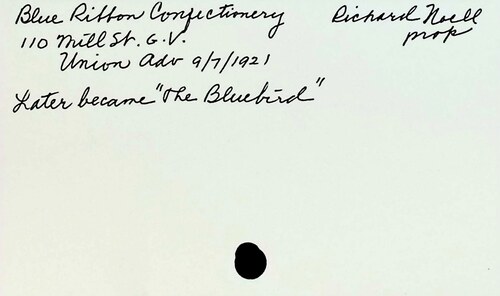 Blue Ribbon Confectionery Richard Noell
prop
110 Mill St. G.V.
Union Adv 9/7/1921
Later became "The Bluebird"